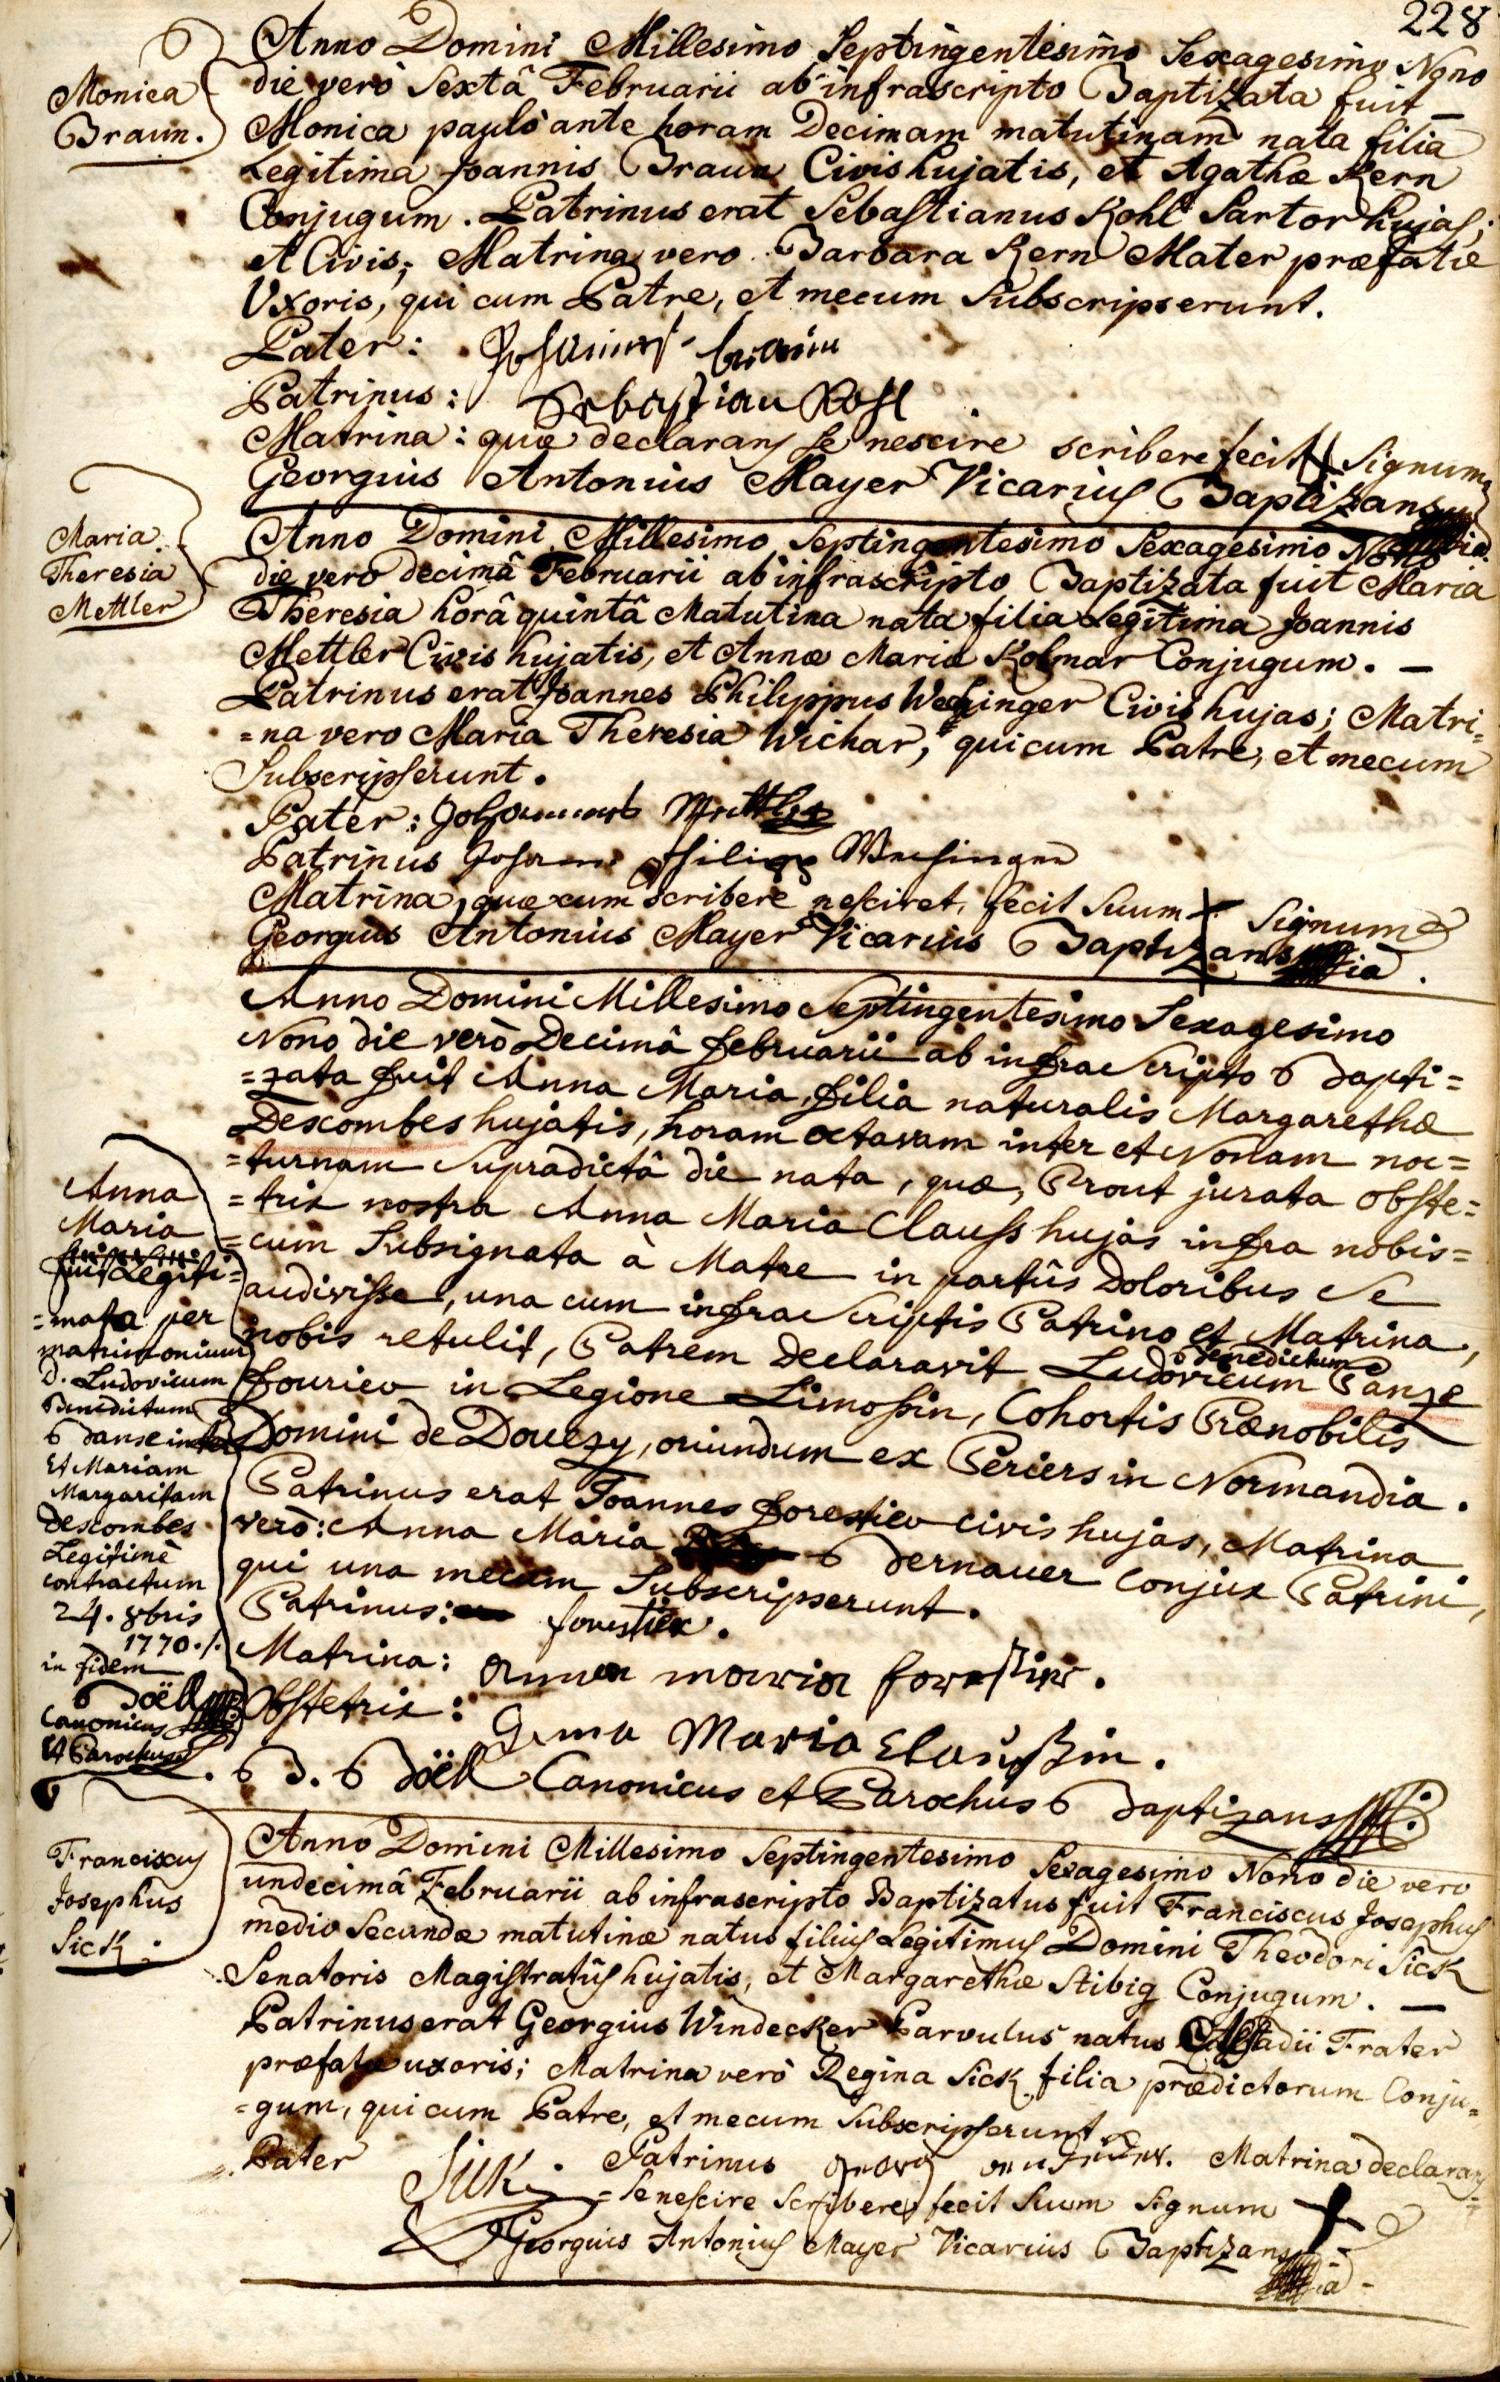 228
Monica
Braun.
Anno Domini Millesimo Septingentesimo Sexagesimo Nono
die verò Sextâ Februarii ab infrascripto Baptizata fuit
Monica paulò ante horam Decimam matutinam nata filia
Legitima Joannis Braun Civis hujatis, et Agathæ Kern
Conjugum. Patrinus erat Sebastianus Kohl Sartor hujas;
et Civis; Matrina vero Barbara Kern Mater præfatæ
Uxoris, qui cum Patre, et mecum Subscripserunt.
Pater: Johannes braun
Patrinus: Sebastian Kohl
Matrina: quæ declarans se nescire scribere fecit Signum
Georgius Antonius Mayer Vicarius Baptizans
Maria
Theresia
Mettler
Anno Domini Millesimo Septingentesimo Sexagesimo Nono
die vero decimâ Februarii ab infrascripto Baptizata fuit Maria
Theresia horâ quintâ Matutina nata filia Legitima Joannis
Mettler Civis hujatis, et Annæ Maria Kolmar Conjugum. —
Patrinus erat Joannes Philippus Wechinger Civis hujas; Matri-
=na vero Maria Theresia Wichar, qui cum Patre, et mecum
Subscripserunt.
Pater: Johannes Mettler
Patrinus Johann Philipp
Matrina, quæ cum scribere nesciret, fecit Suum + Signum
Georgius Antonius Mayer Vicarius Baptizans
Anno Domini Millesimo Septingentesimo Sexagesimo
Nono die verò Decimâ februarii ab infra Scripto Bapti=
=zata fuit Anna Maria, filia naturalis Margarethæ
Descombes hujatis, horam octavam inter et Nonam noc=
=turnam Supradictâ die nata, quæ, Prout jurata obste=
=trix nostra Anna Maria Clauss hujas infra nobis=
=cum Subsignata à Matre in partûs Doloribus Se
audivisse, una cum infra Scriptis Patrino et Matrina,
nobis retulit, Patrem Declaravit Ludovicum Benedictum Panze
fourier in Legione Limossin, Cohortis Prænobilis
Domini de Douezy, oriundum ex Periers in Normandia.
Patrinus erat Joannes forestier civis hujas, Matrina
verò: Anna Maria Bernauer conjux Patrini,
qui una mecum Subscripserunt.
Patrinus: forestier.
Matrina: Anna maria forestier.
Obstetrix: Anna Maria Claussin.
B. Boëll Canonicus et Parochus Baptizans
Anna
Maria
fuit Legiti=
=mata per
matrimonium
D. Ludovicum
Benedictum
Banse inter
Et Mariam
Margaritam
Descombes
Legitimè
contractum
24. 8bris
1770./.
in fidem
Boëll
Canonicus
et Parochus
Franciscus
Josephus
Sick.
Anno Domini Millesimo Septingentesimo Sexagesimo Nono die vero
undecimâ Februarii ab infrascripto Baptizatus fuit Franciscus Josephus
medio Secundæ matutinæ natus filius Legitimus Domini Theodori Sick
Senatoris Magistratûs hujatis, et Margarethæ Stibig Conjugum. —
Patrinus erat Georgius Windecker Parvulus natus Frater
præfatæ uxoris; Matrina verò Regina Sick filia prædictorum Conju=
=gum, qui cum Patre, et mecum Subscripserunt.
Pater Sick. Patrinus Georg Matrina declarans
=se nescire Scribere, fecit Suum Signum +
Georgius Antonius Mayer Vicarius Baptizans